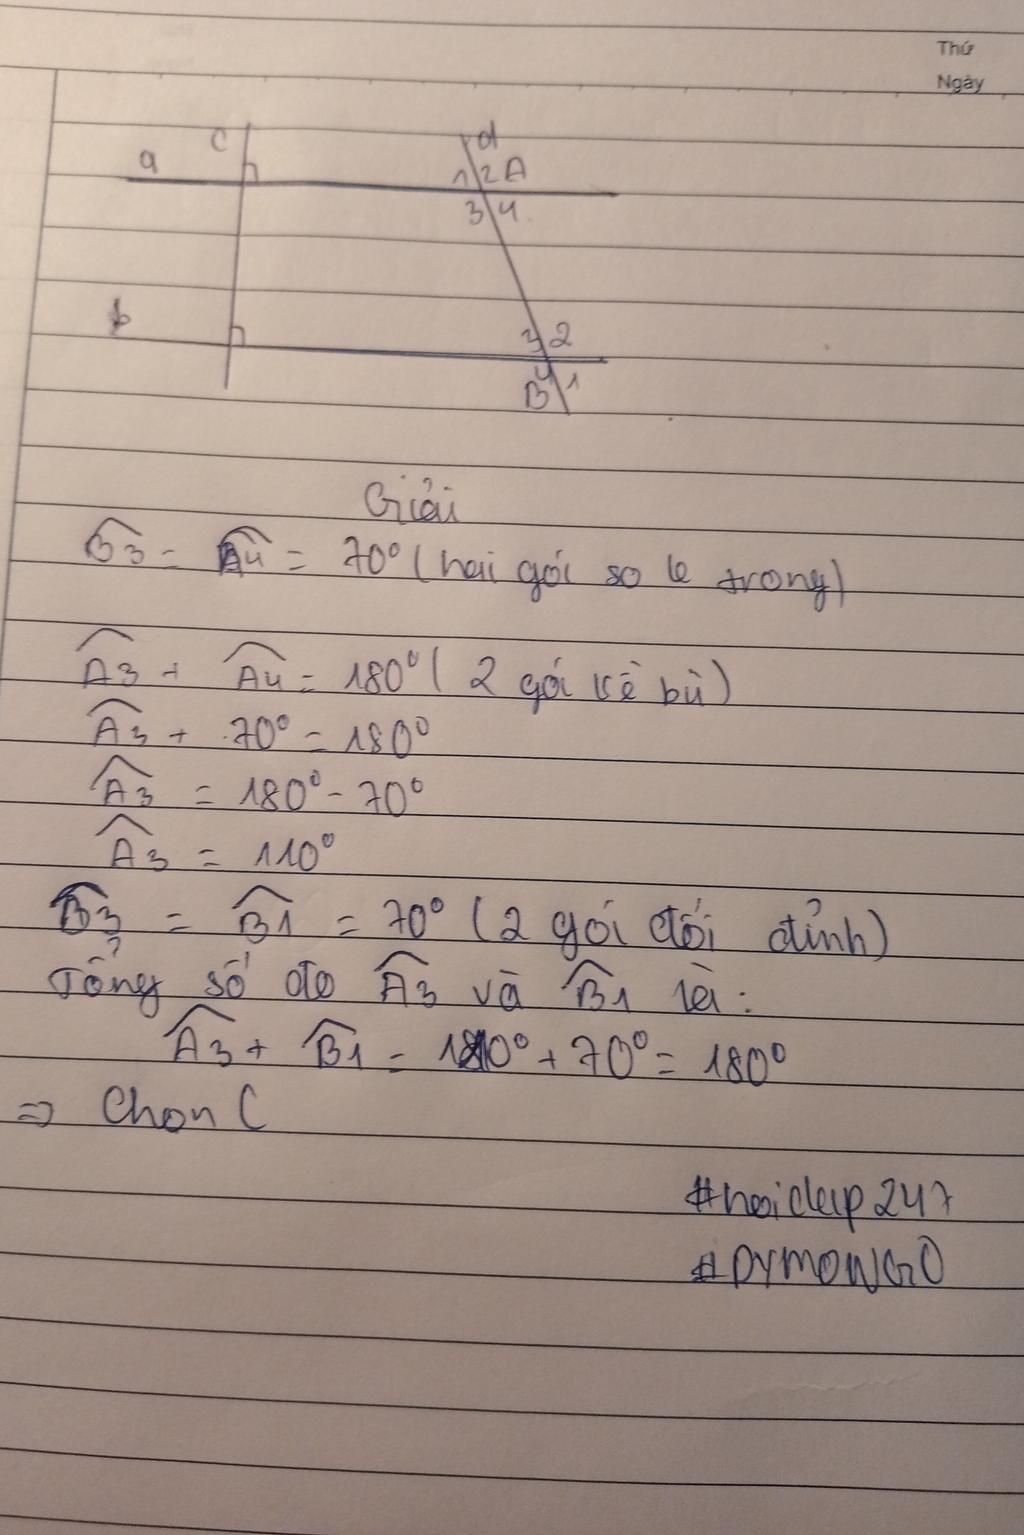 Thứ
Ngày
c d
a 1 2 A
3 4
b 3 2
4 1
B
Giải
B3 = A4 = 70° (hai gói so le trong)
A3 + A4 = 180° ( 2 gói kề bù)
A3 + 70° = 180°
A3 = 180° - 70°
A3 = 110°
B3 = B1 = 70° (2 gói đối đỉnh)
Tổng số đo A3 và B1 là:
A3 + B1 = 110° + 70° = 180°
=> Chọn C
#hoidap247
#DYMOWGO